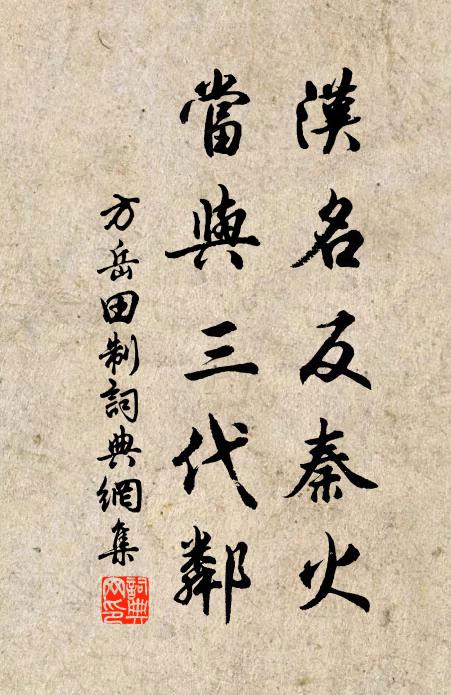 漢名反秦火
當與三代鄰
方岳田制詞典網集
詞典網印